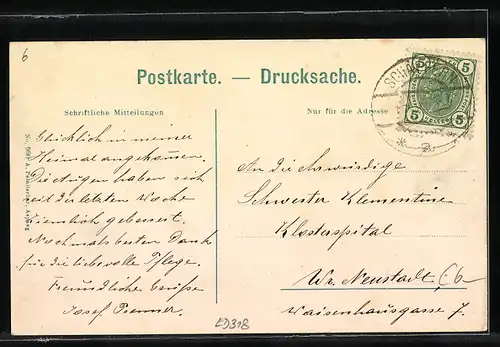 6
Postkarte. — Drucksache.
Schriftliche Mitteilungen
Nur für die Adresse
5 5
5 5
Glücklich in meiner
Heimat angekommen.
Die Augen haben sich
seit der letzten Woche
ziemlich gebessert.
Nochmals besten Dank
für die liebevolle Pflege.
Freundliche Grüße
Josef
An die Ehrwürdige
Schwester Klementine
Klosterspital
Wr. Neustadt
Waisenhausgasse 7.
LD318